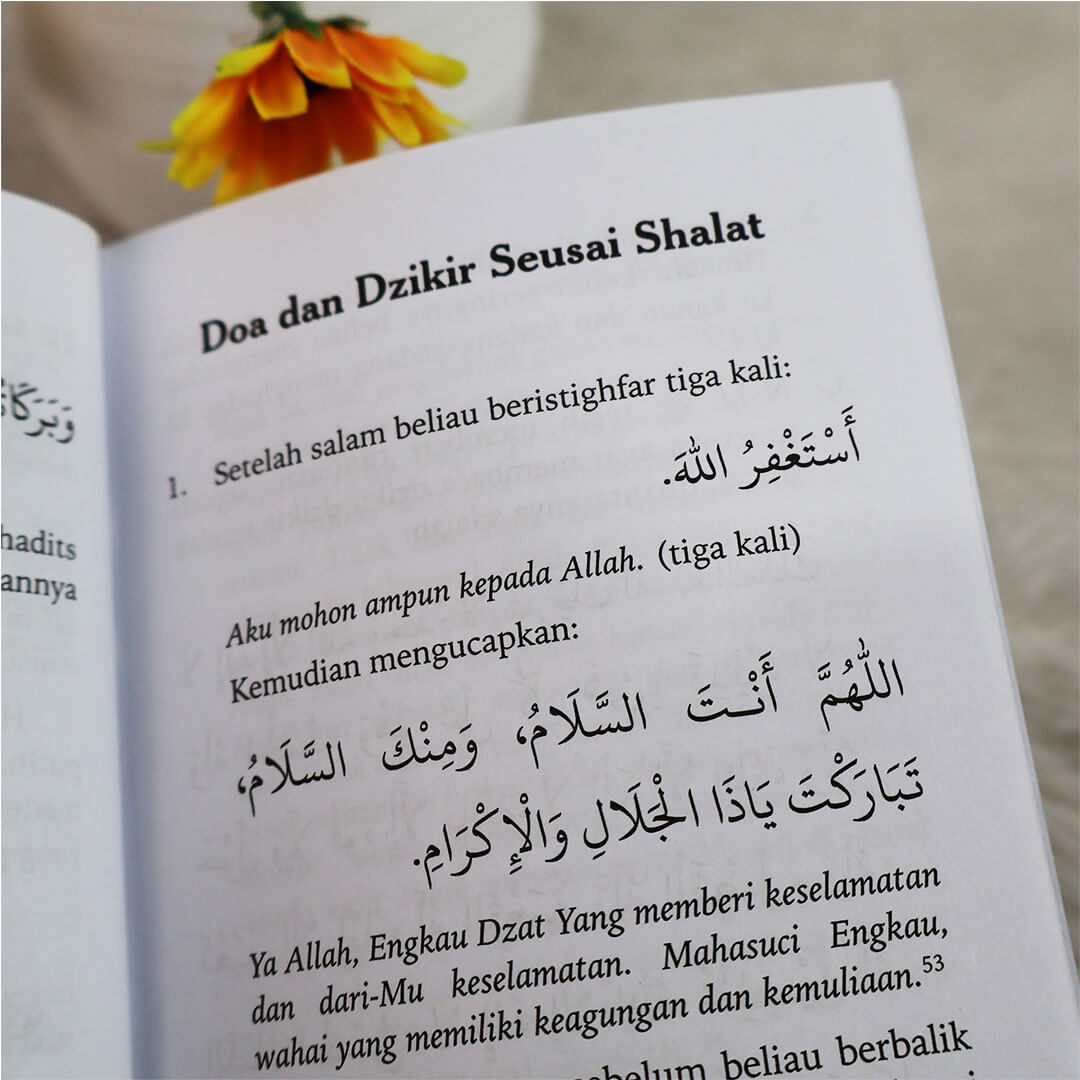 وَبَرَكَا
hadits
annya
Doa dan Dzikir Seusai Shalat
1. Setelah salam beliau beristighfar tiga kali:
أَسْتَغْفِرُ اللّٰهَ.
Aku mohon ampun kepada Allah. (tiga kali)
Kemudian mengucapkan:
اللّٰهُمَّ أَنْـتَ السَّلَامُ، وَمِنْكَ السَّلَامُ،
تَبَارَكْتَ يَاذَا الْجَلَالِ وَالْإِكْرَامِ.
Ya Allah, Engkau Dzat Yang memberi keselamatan
dan dari-Mu keselamatan. Mahasuci Engkau,
wahai yang memiliki keagungan dan kemuliaan.53
sebelum beliau berbalik